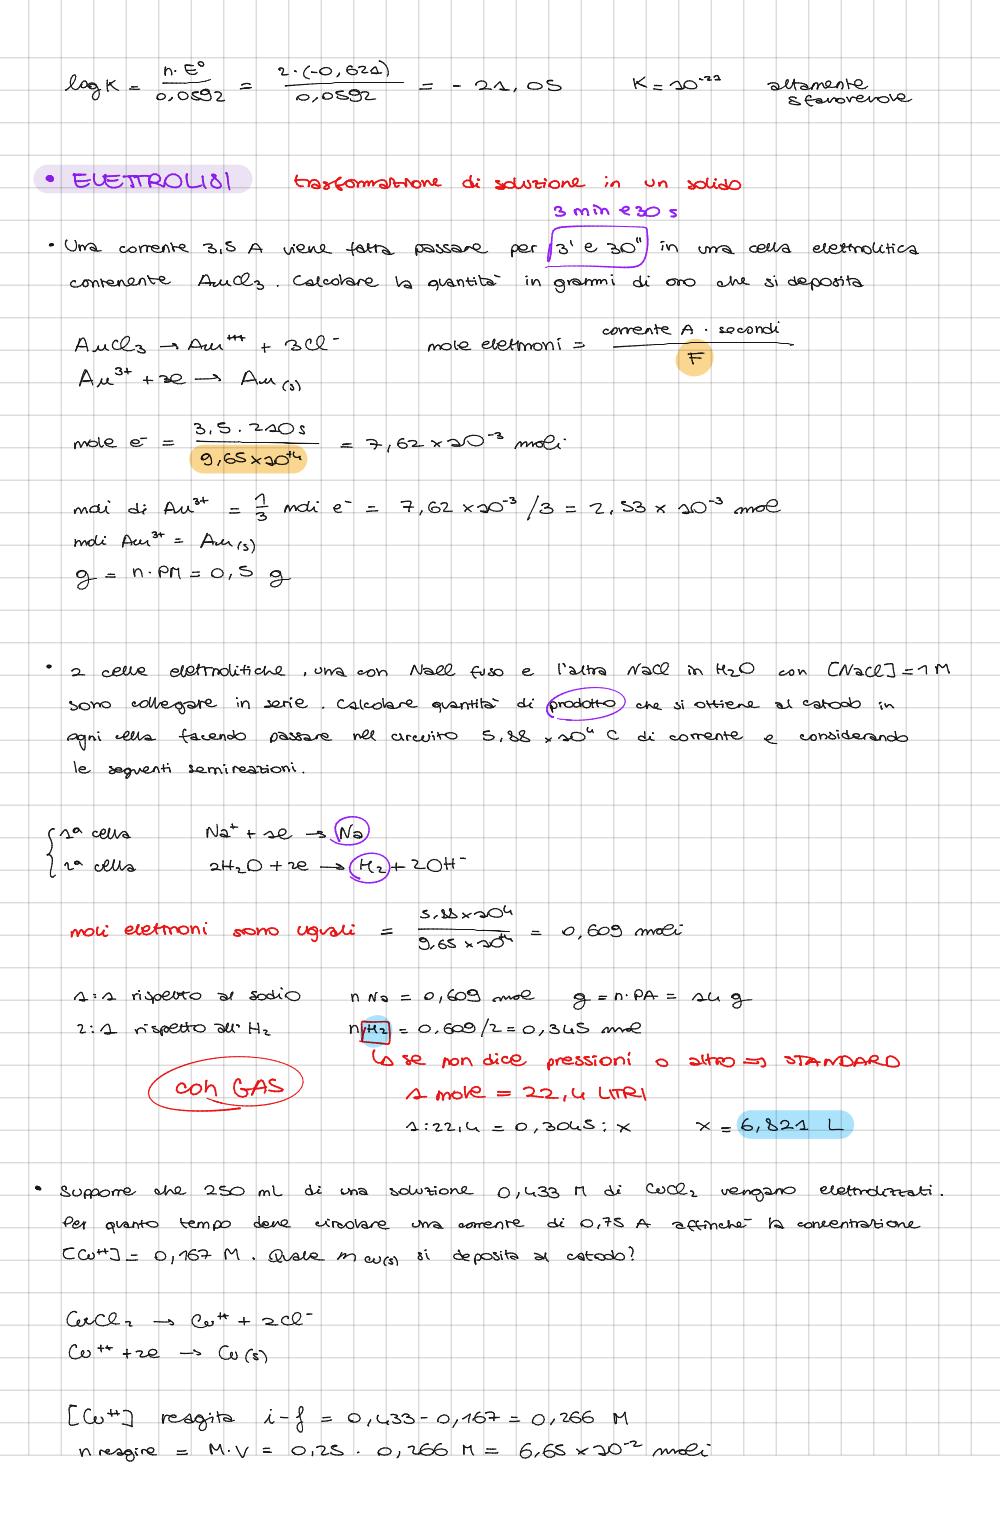 log K = n·E° / 0,0592 = 2·(-0,621) / 0,0592 = - 21,05 K = 10⁻²² altamente sfavorevole
• ELETTROLISI trasformazione di soluzione in un solido
3 min e 30 s
• Una corrente 3,5 A viene fatta passare per 3' e 30" in una cella elettrolitica
contenente AuCl₃. Calcolare la quantità in grammi di oro che si deposita
AuCl₃ → Au⁺⁺⁺ + 3Cl⁻ mole elettroni = corrente A · secondi / F
Au³⁺ + 3e → Au(s)
mole e⁻ = 3,5 · 210s / 9,65×10⁺⁴ = 7,62 × 10⁻³ moli
moli di Au³⁺ = 1/3 moli e⁻ = 7,62 × 10⁻³ /3 = 2,53 × 10⁻³ mole
moli Au³⁺ = Au(s)
g = n·PM = 0,5 g
• 2 celle elettrolitiche, una con NaCl fuso e l'altra NaCl in H₂O con [NaCl] = 1 M
sono collegate in serie. Calcolare quantità di prodotto che si ottiene al catodo in
ogni cella facendo passare nel circuito 5,88 × 10⁴ C di corrente e considerando
le seguenti semireazioni.
1ª cella Na⁺ + 1e → Na
2ª cella 2H₂O + 2e → H₂ + 2OH⁻
moli elettroni sono uguali = 5,88×10⁴ / 9,65×10⁺⁴ = 0,609 moli
1:1 rispetto al sodio n Na = 0,609 mole g = n·PA = 14 g
2:1 rispetto all' H₂ n H₂ = 0,609/2 = 0,345 mole
↳ se non dice pressioni o altro ⇒ STANDARD
con GAS 1 mole = 22,4 LITRI
1:22,4 = 0,3045 : x x = 6,821 L
• Supporre che 250 mL di una soluzione 0,433 M di CuCl₂ vengano elettrolizzati.
Per quanto tempo deve circolare una corrente di 0,75 A affinchè la concentrazione
[Cu⁺⁺] = 0,167 M. Quale m Cu(s) si deposita al catodo?
CuCl₂ → Cu⁺⁺ + 2Cl⁻
Cu⁺⁺ + 2e → Cu(s)
[Cu⁺⁺] reagita i-f = 0,433 - 0,167 = 0,266 M
n reagire = M·V = 0,25 · 0,266 M = 6,65 × 10⁻² moli